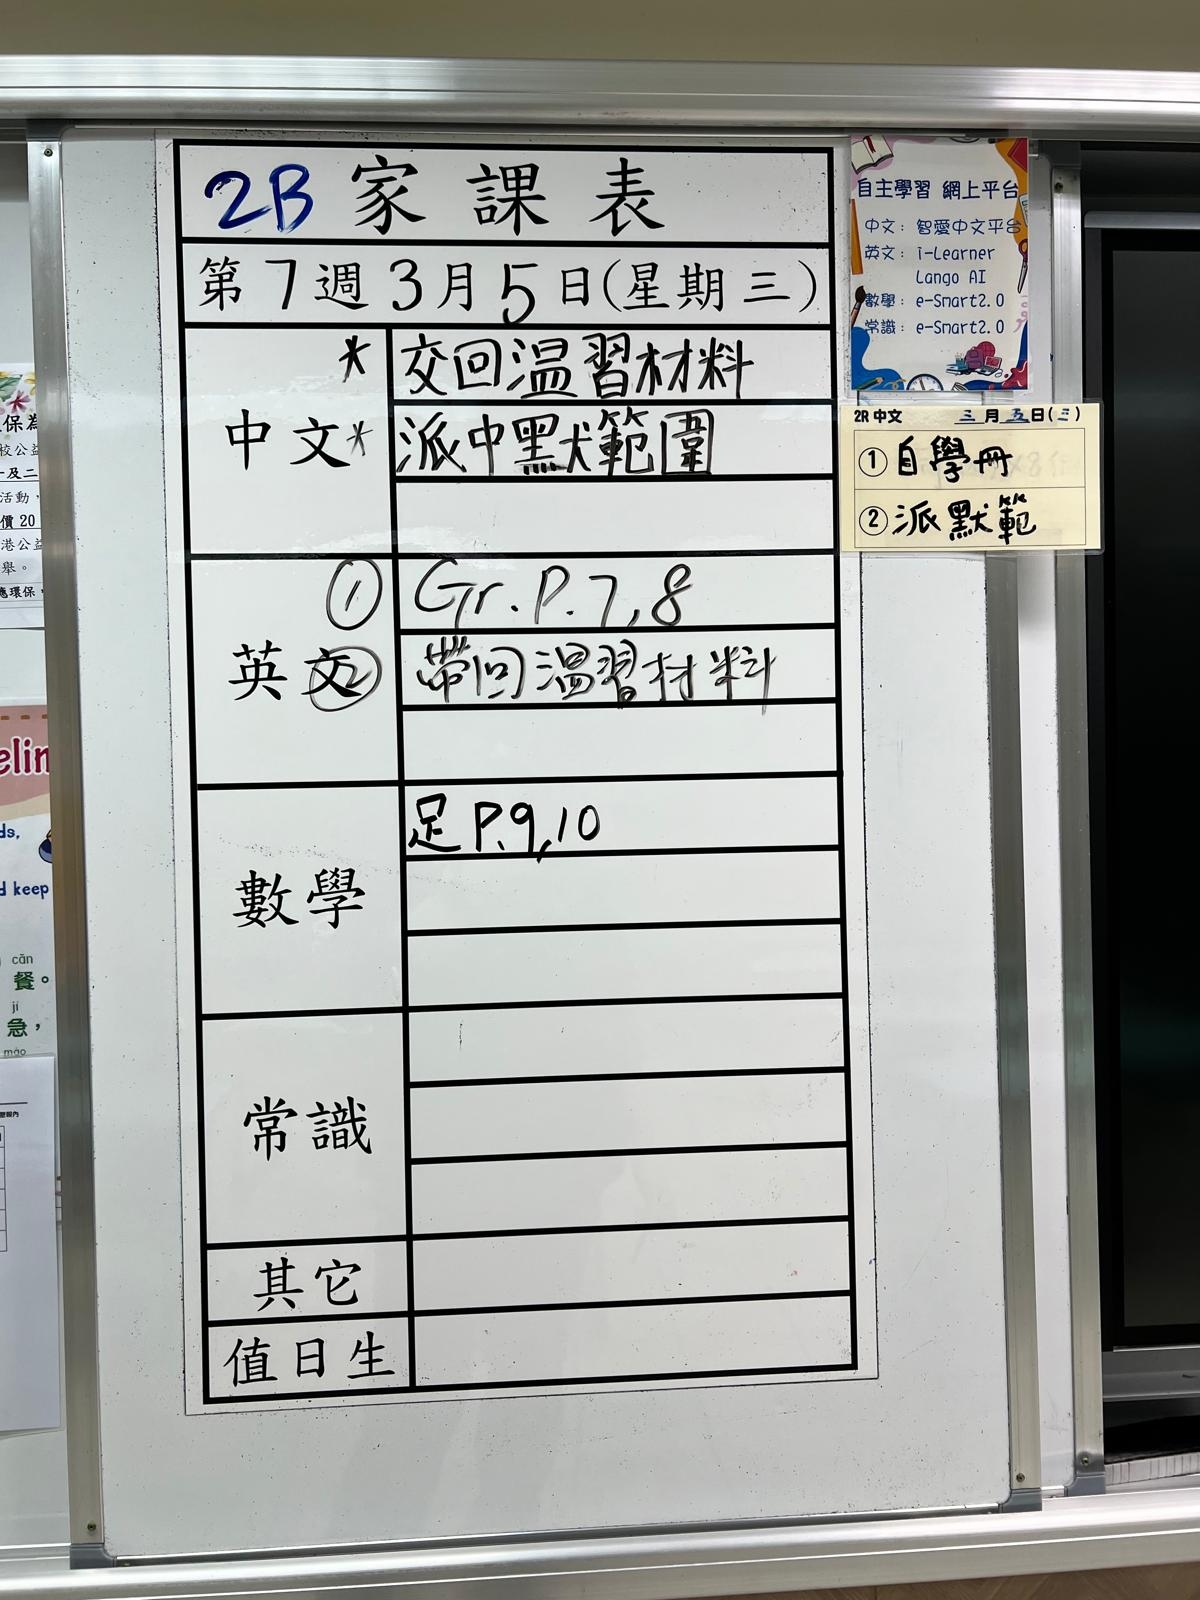 2B 家課表
第7週3月5日(星期三)
中文
* 交回温習材料
* 派中默範圍
英文
① Gr. P. 7, 8
② 帶回温習材料
數學
足 P.9,10
常識
其它
值日生
自主學習 網上平台
中文: 智愛中文平台
英文: i-Learner
Lango AI
數學: e-Smart2.0
常識: e-Smart2.0
2R中文 三月五日(三)
① 自學冊
② 派默範
保為
校公益
及二
活動,
價 20
港公益
舉。
應環保,
elin
ds,
d keep
cān
餐。
jí
急,
māo